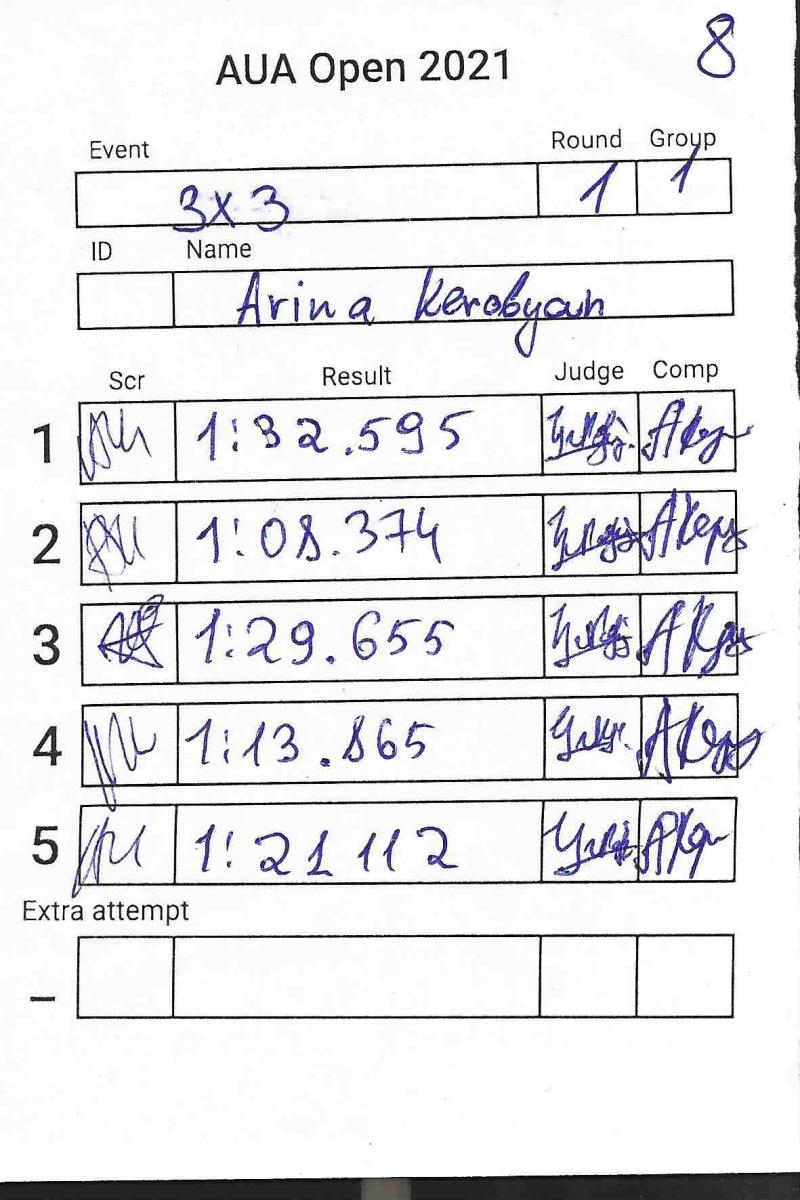 8
AUA Open 2021
Event Round Group
3x3 1 1
ID Name
Arina Kerobyan
Scr Result Judge Comp
1 1:32.595
2 1:08.374
3 1:29.655
4 1:13.865
5 1:21 112
Extra attempt
–